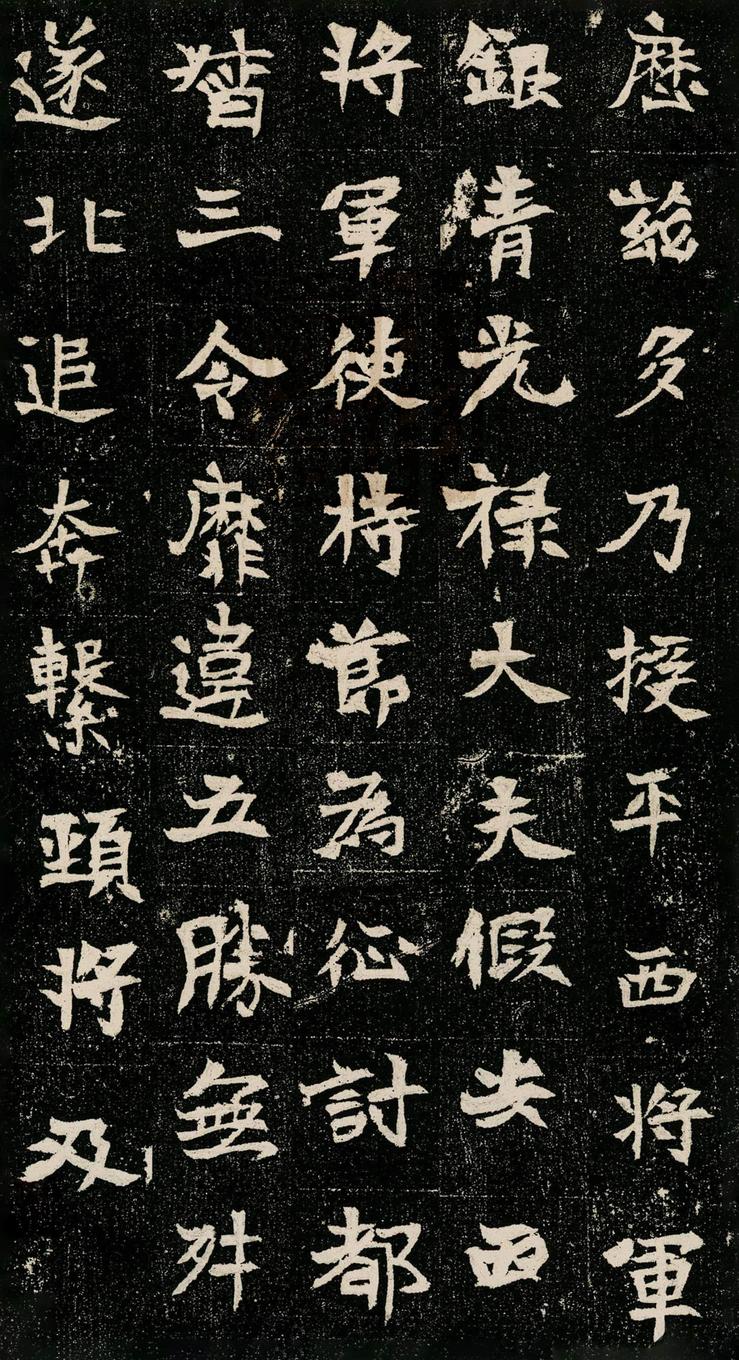 歷茲多乃授平西将軍
銀青光禄大夫假安西
将軍使持節為征討都
督三令靡違五勝無舛
遂北追奔繫頸将及